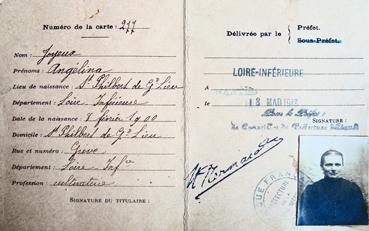 Numéro de la carte : 277
Nom : Joyeux
Prénoms : Angélina
Lieu de naissance : St Philbert de Gd Lieu
Département : Loire Inférieure
Date de la naissance : 8 février 1900
Domicile : St Philbert de Gd Lieu
Rue et numéro :
Département : Loire Infre
Profession cultivatrice
SIGNATURE DU TITULAIRE :
Délivrée par le
Préfet.
Sous-Préfet.
LOIRE-INFÉRIEURE
A
le
Pour le Préfet :
SIGNATURE :